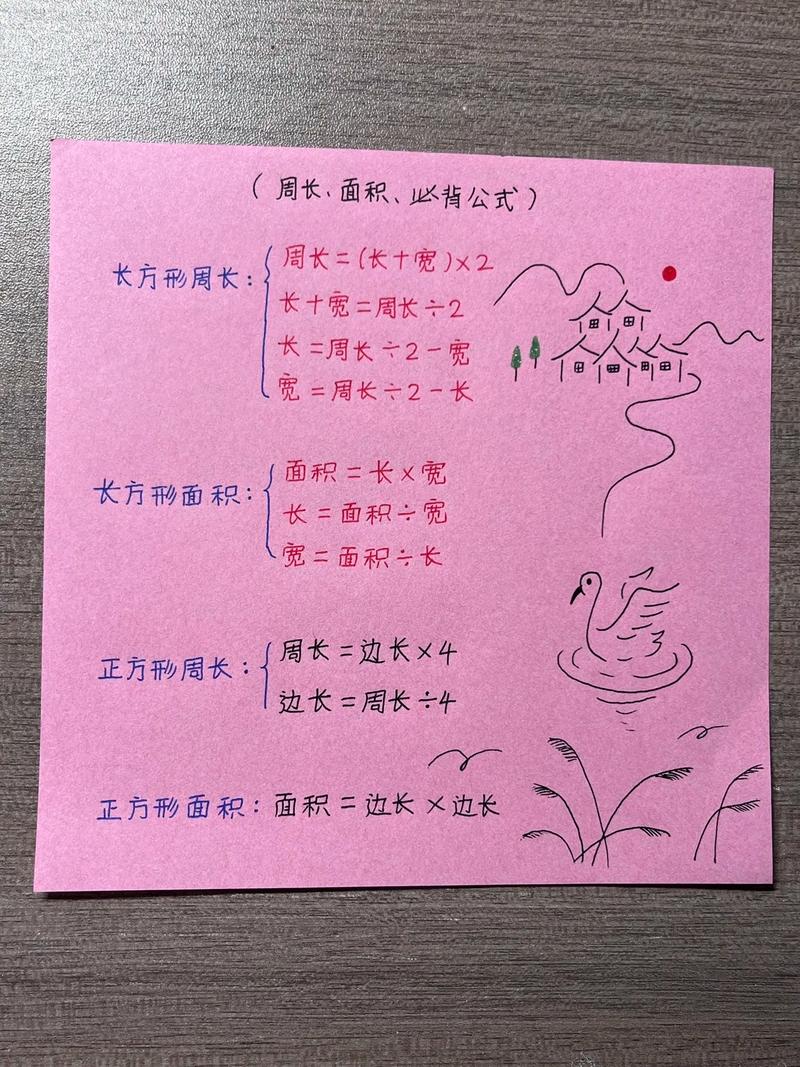 （周长、面积、必背公式）
长方形周长：
周长＝(长＋宽)×2
长＋宽＝周长÷2
长＝周长÷2－宽
宽＝周长÷2－长
长方形面积：
面积＝长×宽
长＝面积÷宽
宽＝面积÷长
正方形周长：
周长＝边长×4
边长＝周长÷4
正方形面积：面积＝边长×边长